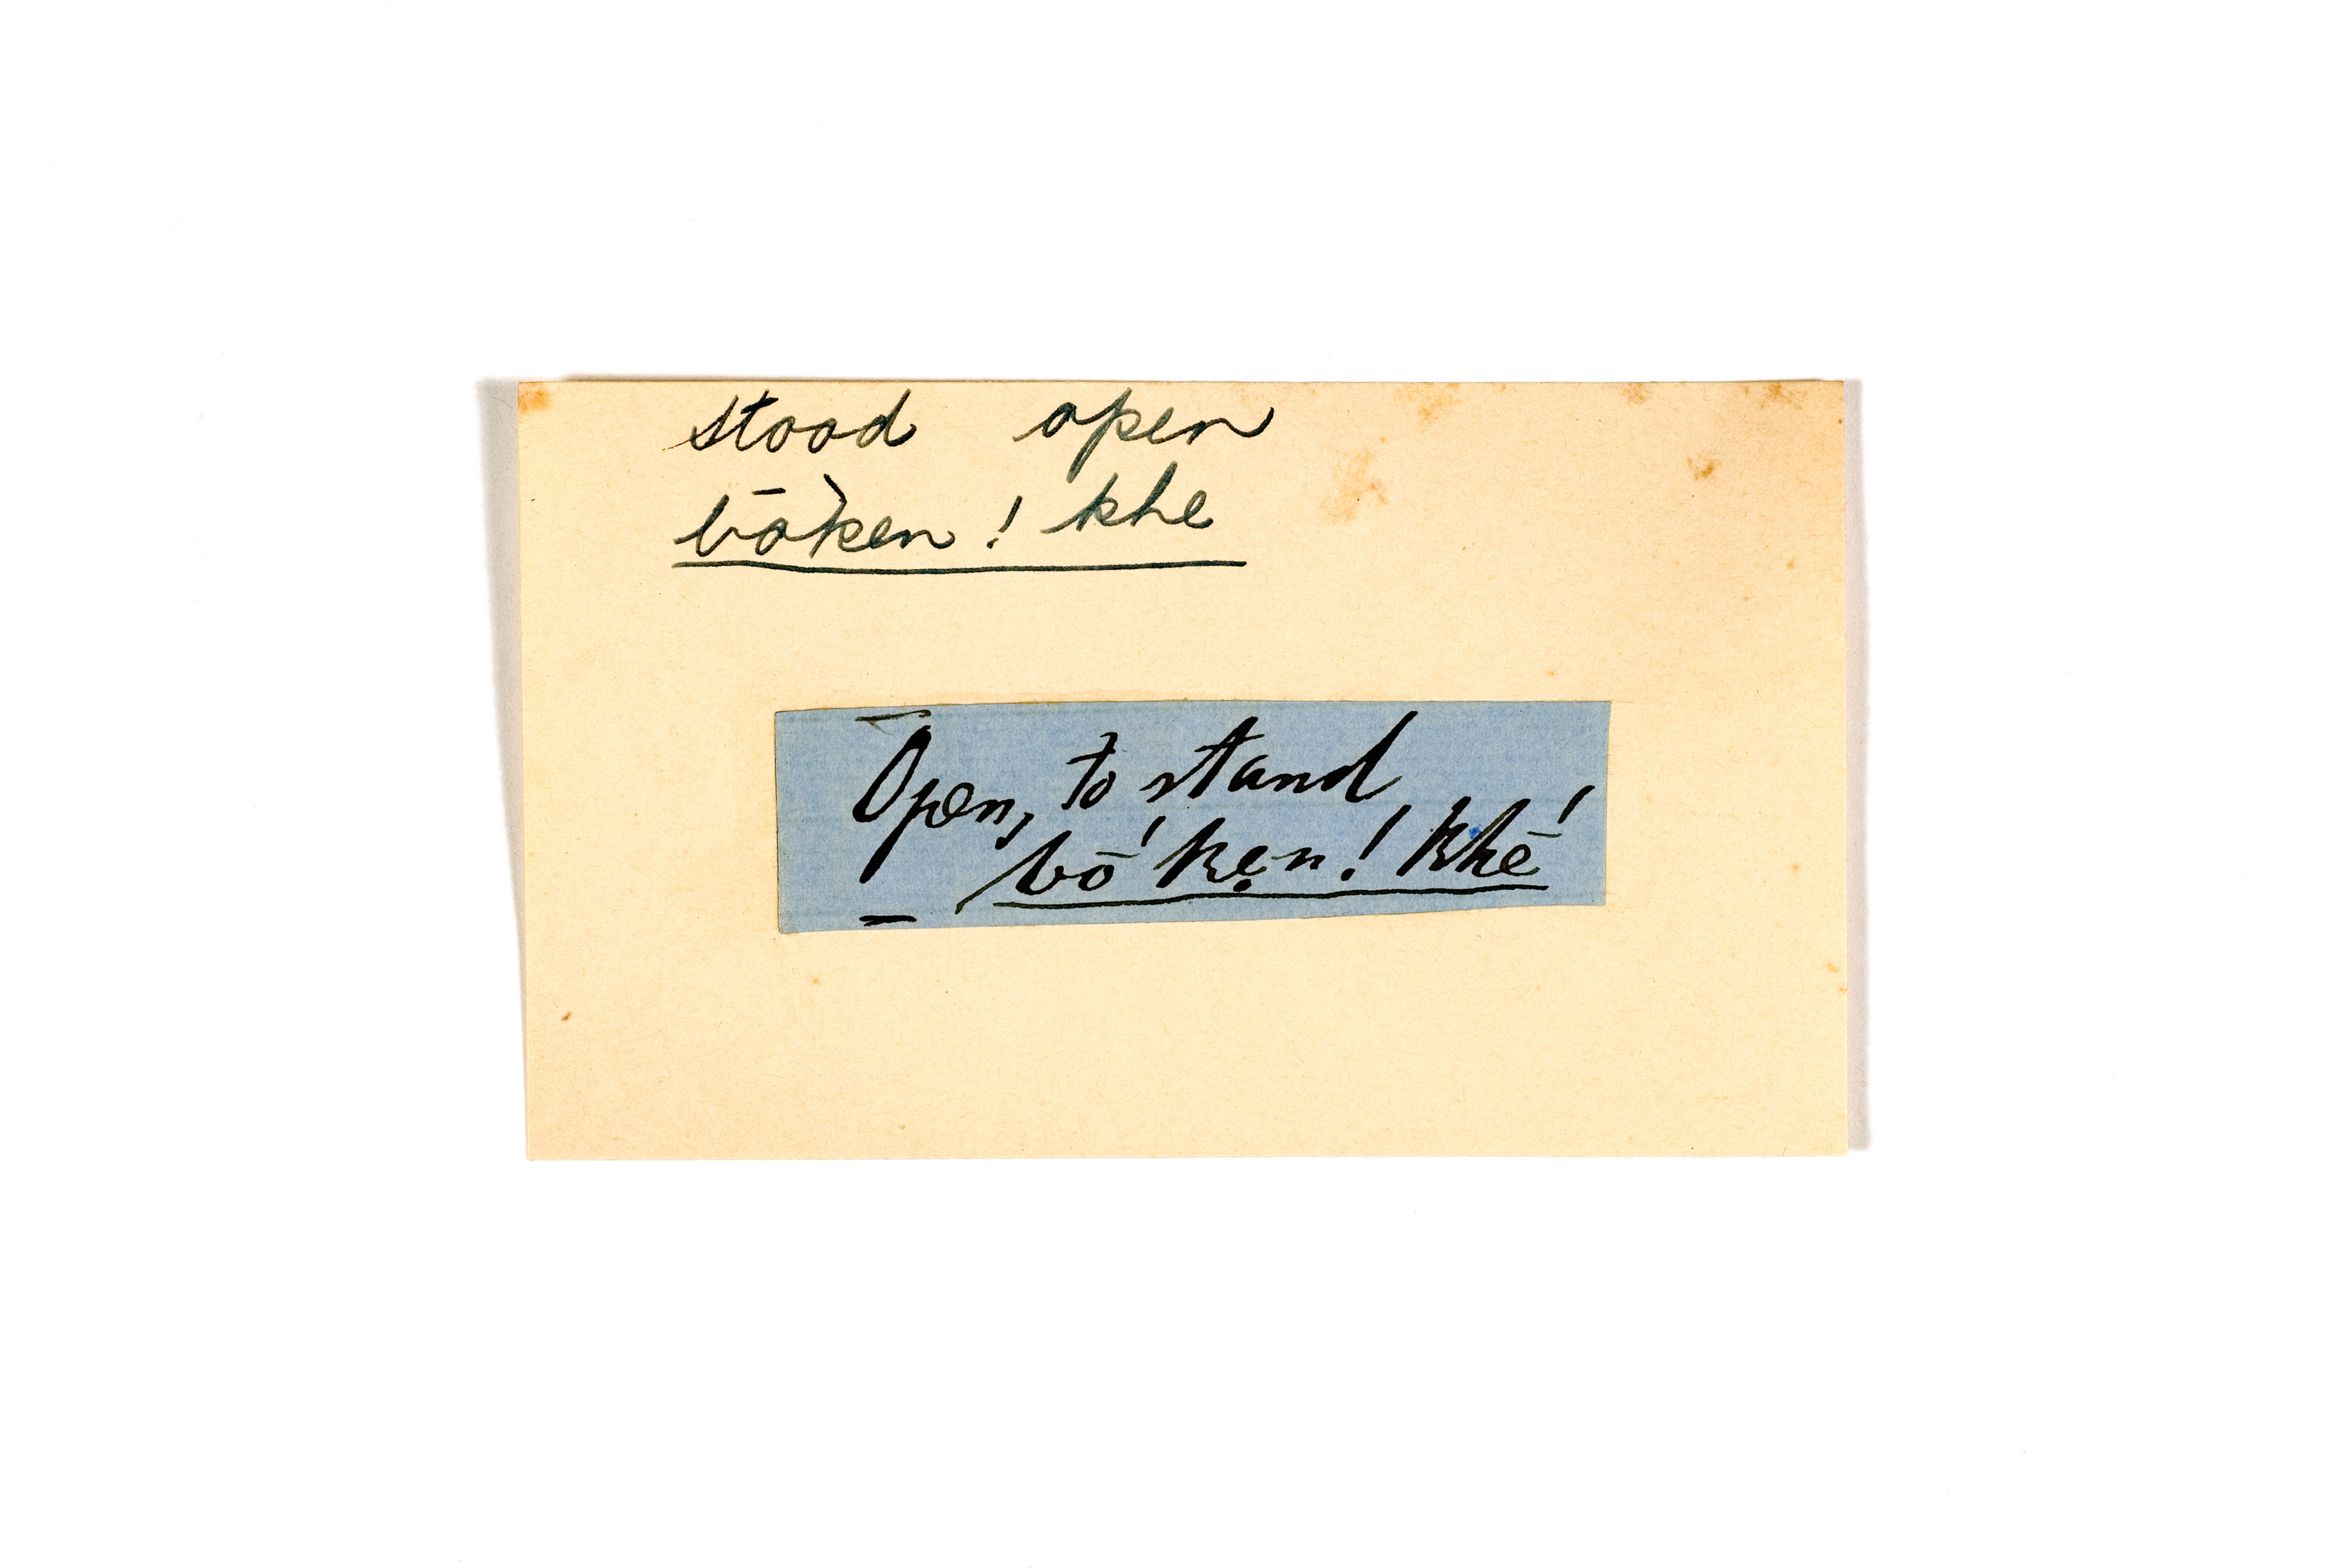 stood open
bōk̀en! khe
Open, to stand
bō´kẹn! khē´